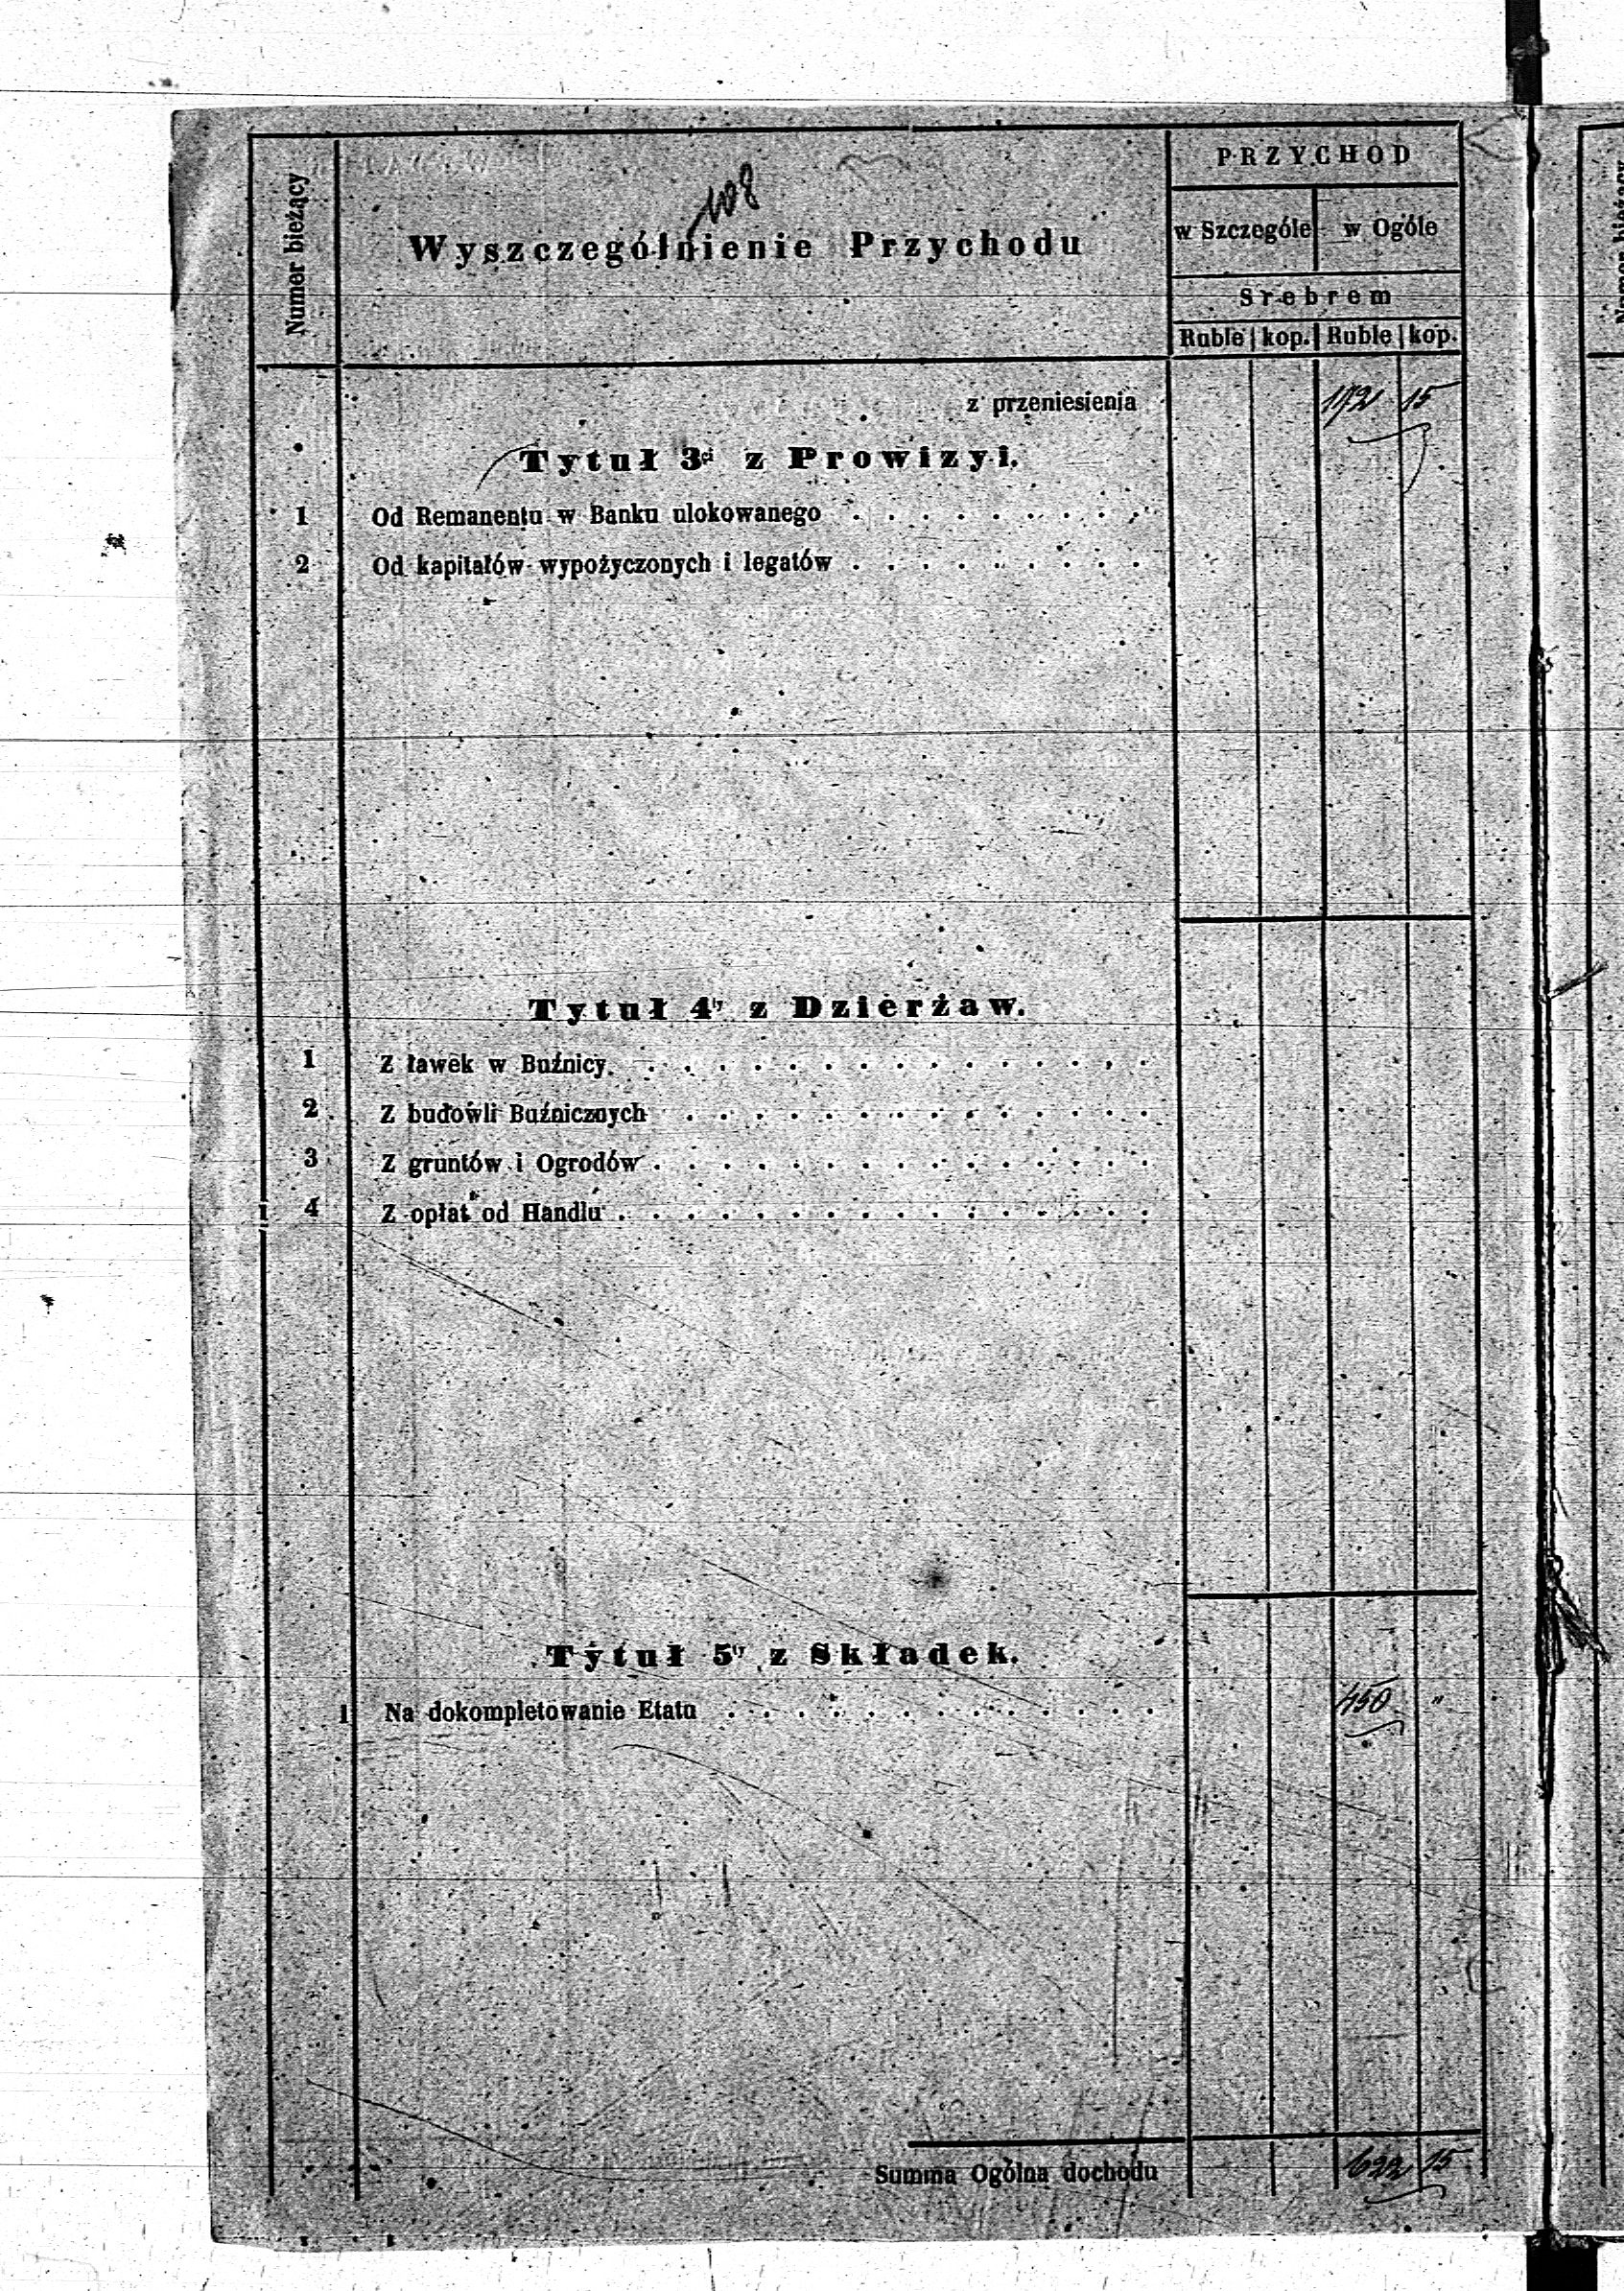 108
Numer bieżący
Wyszczególnienie Przychodu
PRZYCHOD
w Szczególe w Ogóle
Srebrem
Ruble kop. Ruble kop.
z przeniesienia 172 15
Tytuł 3ci z Prowizyi.
1 Od Remanentu w Banku ulokowanego . . . . . . . . .
2 Od kapitałów wypożyczonych i legatów . . . . . . . . .
Tytuł 4ty z Dzierżaw.
1 Z ławek w Buźnicy . . . . . . . . . . . . . . .
2 Z budowli Buźnicznych . . . . . . . . . . . . . .
3 Z gruntów i Ogrodów . . . . . . . . . . . . . . .
4 Z opłat od Handlu . . . . . . . . . . . . . . . .
Tytuł 5ty z Składek.
1 Na dokompletowanie Etatu . . . . . . . . . . . . . 450 "
Summa Ogólna dochodu 622 15